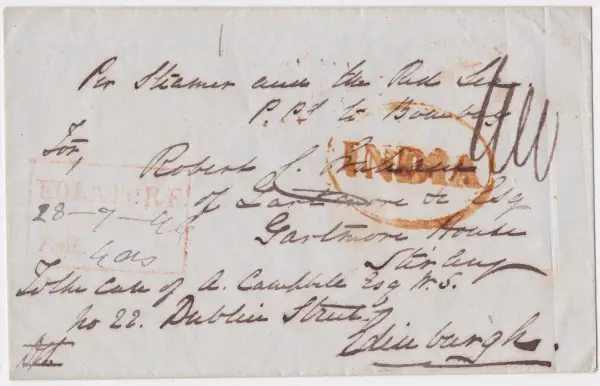 Per Steamer and the Red Sea.
P. Pd to Bombay
For,
Robert
INDIA
of Gartmore &c Esq
KOLAPORE
28-7-46
Paid
Gartmore House
Stirling
To the care of A. Campbell Esq W.S.
No 22. Dublin Street
Edinburgh.